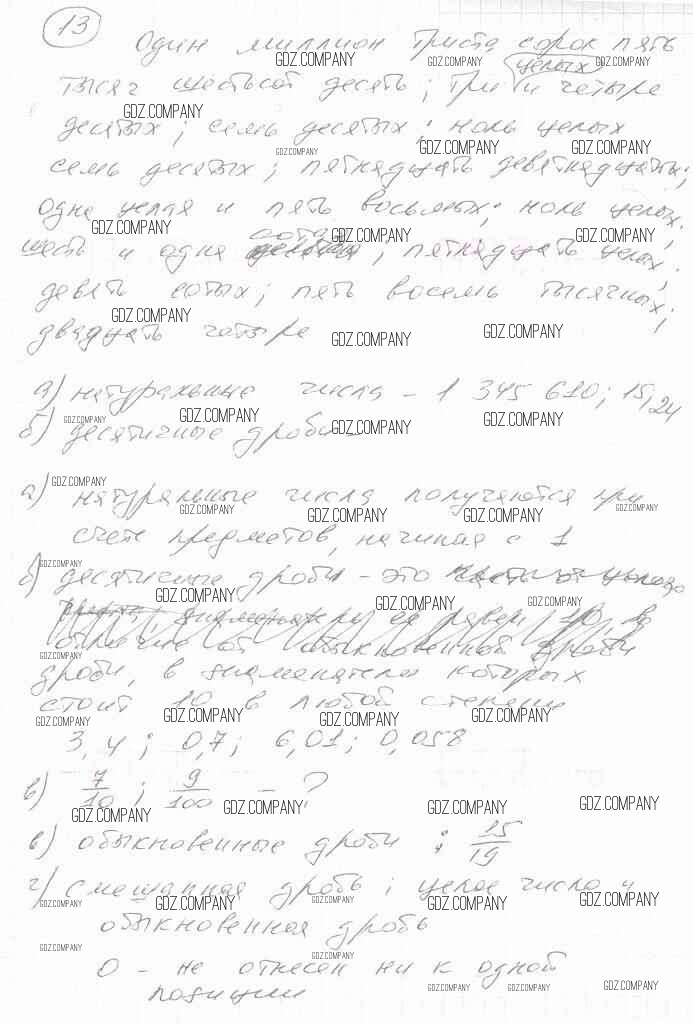 13
Один миллион триста сорок пять
целых
тысяч шестьсот десять; три и четыре
десятых; семь десятых; ноль целых
семь десятых; пятнадцать девятнадцатых;
одна целая и пять восьмых; ноль целых;
шесть и одна сотая; пятнадцать целых;
девять сотых; пять восемь тысячных;
двадцать четыре
а) натуральные числа – 1 345 610; 15, 24
б) десятичные дроби –
а) натуральные числа получаются при
счете предметов, начиная с 1
б) десятичные дроби – это
знаменатель ее равен 10 в
отличие от обыкновенной дроби
дроби, в знаменателе которых
стоит 10 в любой степени
3,4; 0,7; 6,01; 0,058
в) 7/10; 9/100 – ?
в) обыкновенные дроби: 15/19
г) смешанная дробь; целое число и
обыкновенная дробь
0 – не отнесен ни к одной
позиции
GDZ.COMPANY